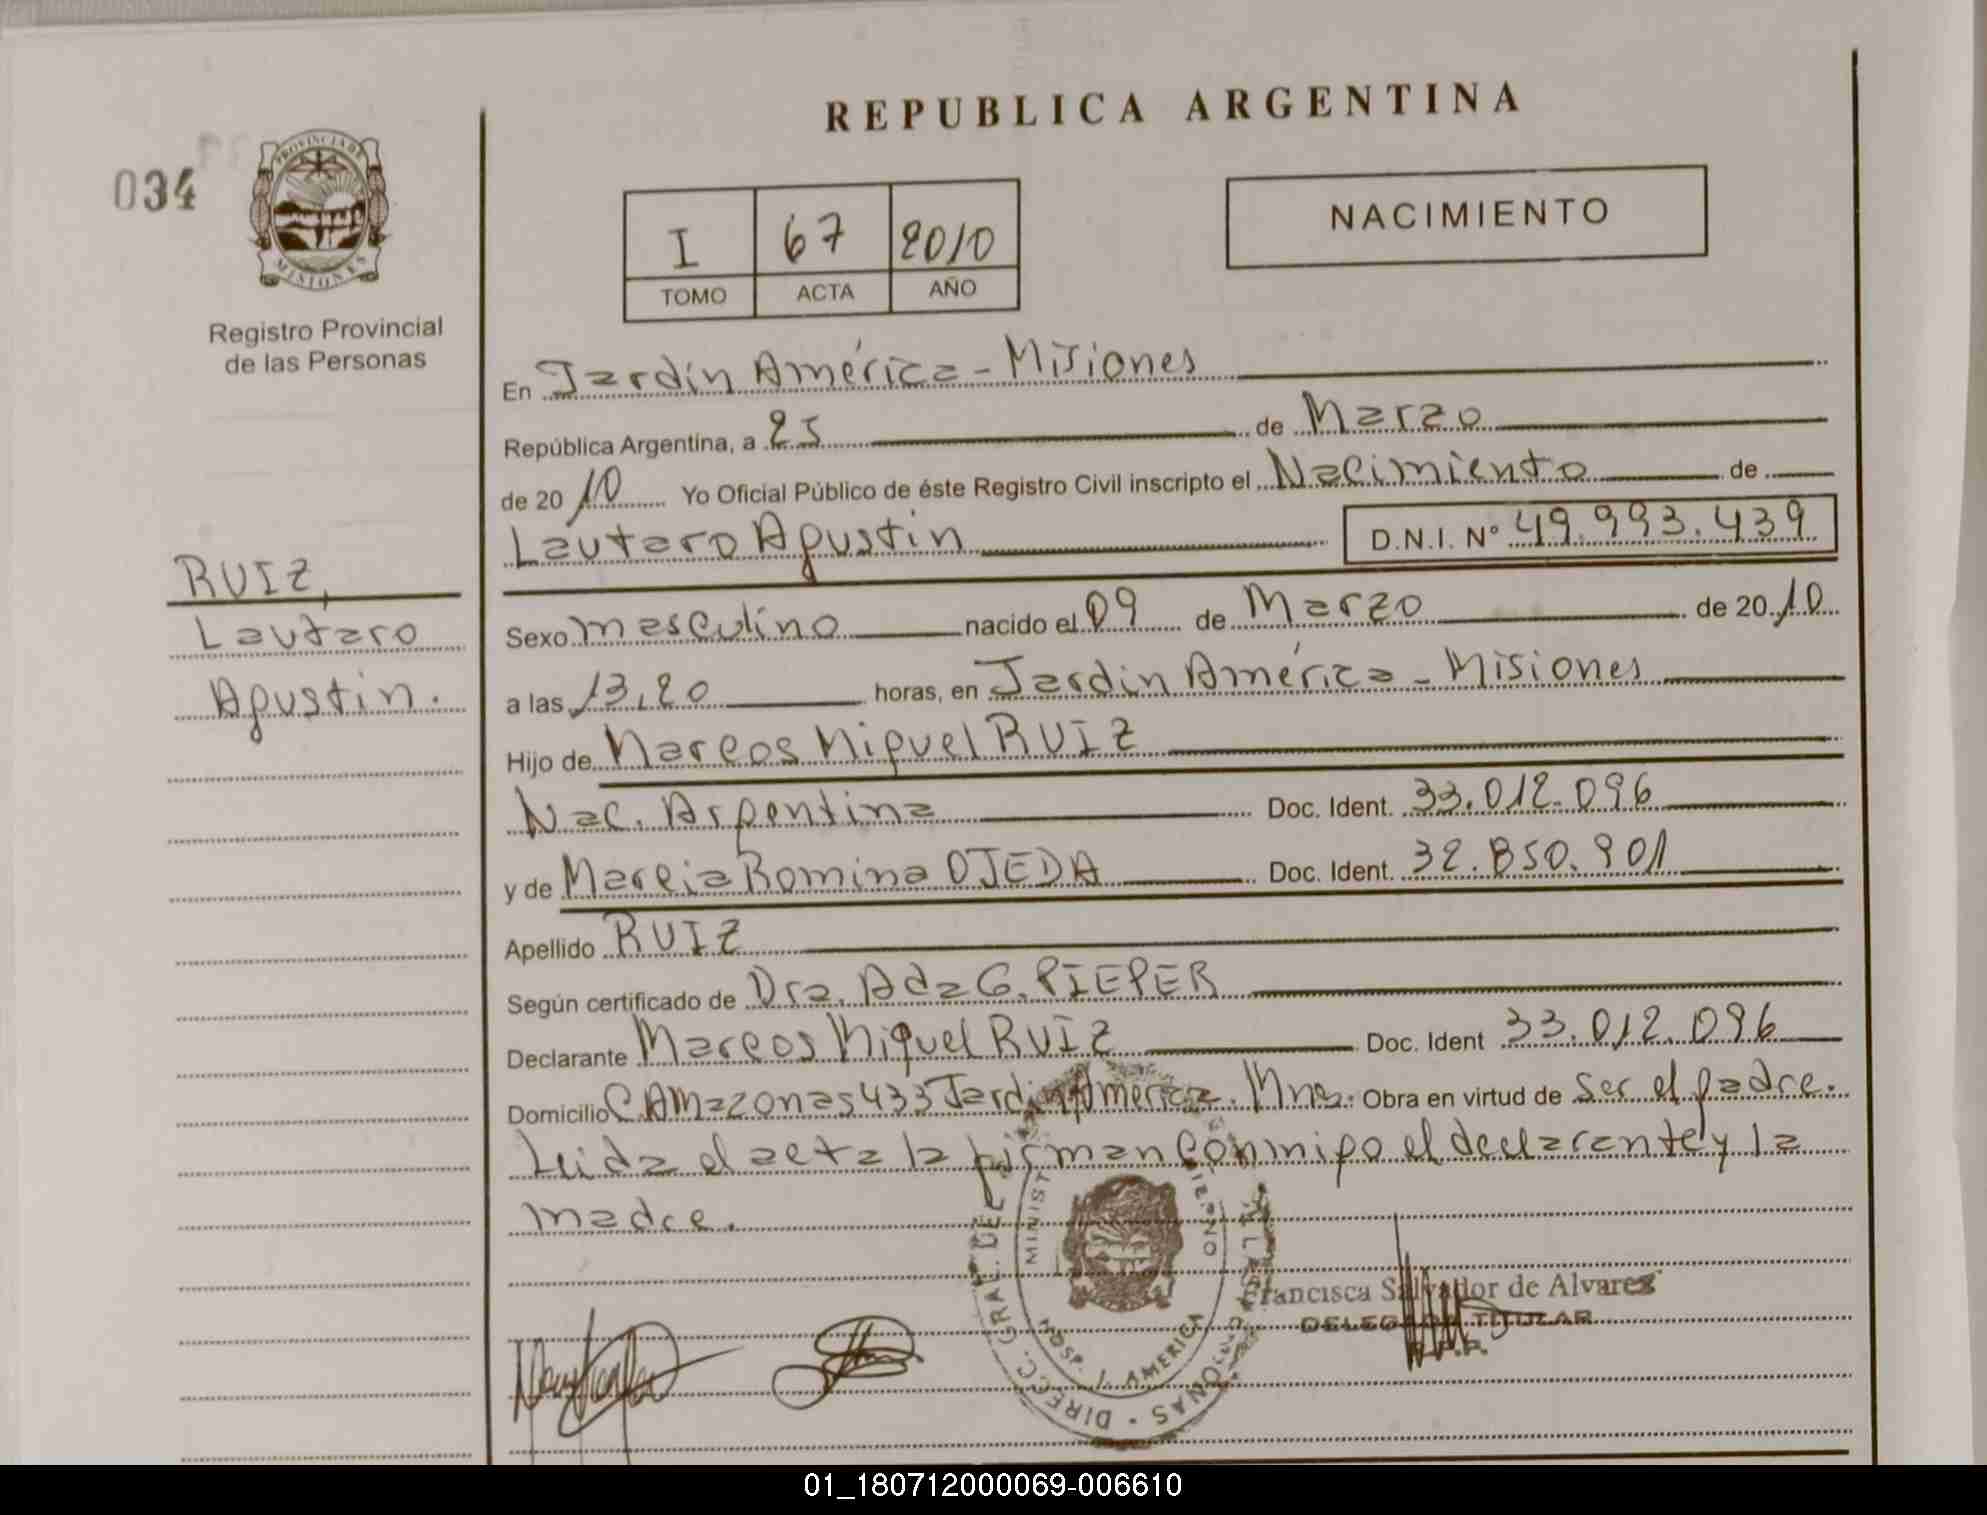 REPUBLICA ARGENTINA
034
PROVINCIA DE
MISIONES
Registro Provincial
de las Personas
I 67 2010
TOMO ACTA AÑO
NACIMIENTO
En Jardín América - Misiones
República Argentina, a 25 de Marzo
de 20 10 Yo Oficial Público de éste Registro Civil inscripto el Nacimiento de
Lautaro Agustin D.N.I. Nº 49.993.439
RUIZ,
Lautaro
Agustin.
Sexo masculino nacido el 09 de Marzo de 20 10
a las 13,20 horas, en Jardin América - Misiones
Hijo de Marcos Miguel RUIZ
Nac. Argentina Doc. Ident. 33.012.096
y de Marcia Romina OJEDA Doc. Ident. 32.850.901
Apellido RUIZ
Según certificado de Dra. Ada G. PIEPER
Declarante Marcos Miguel RUIZ Doc. Ident 33.012.096
Domicilio C. Amazonas 433 Jardin América. Mnes. Obra en virtud de Ser el padre.
Leida el acta la firman conmigo el declarante y la
madre.
Francisca Salvador de Alvarez
DELEGADA TITULAR
R.P.P.
DIRECC. GRAL. DEL
MINIST
HOSP. J. AMERICA
01_180712000069-006610